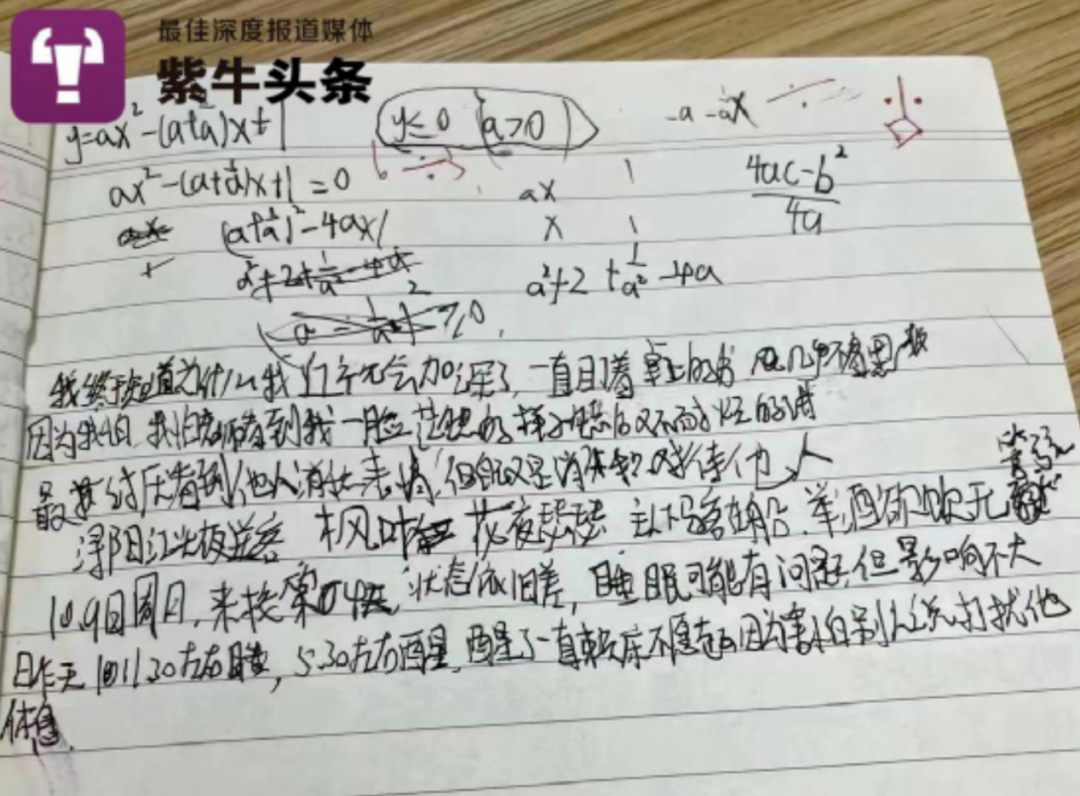 最佳深度报道媒体
紫牛头条
y=ax²-(a+1/a)x+1
y≤0 (a>0)
-a-1/ax
ax²-(a+1/a)x+1=0
ax 1
x 1
4ac-b²/4a
(a+1/a)²-4ax1
a²+2+1/a²-4a
我终于知道为什么我 会加深了 一直盯着桌上的书 几乎不看黑板
因为我怕 我怕老师看到我一脸茫然的样子
最 看到他人消极表情,但自己又是消极 对待他人
浔阳江头夜送客 枫叶 花夜瑟瑟 主人下马客在船 举酒欲饮无管弦
10.9日周日,来校第4天,状态依旧差,睡眠可能有问题,但影响不大
昨天 11.30左右睡,5.30左右醒,醒了一直赖床不愿起因为害怕别人说打扰他
休息